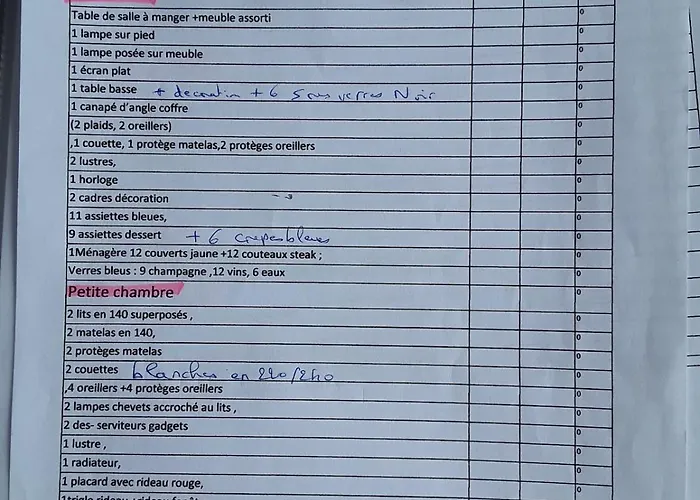 Table de salle à manger +meuble assorti 0
1 lampe sur pied 0
1 lampe posée sur meuble 0
1 écran plat 0
1 table basse + decoration + 6 sous verres Noir 0
1 canapé d'angle coffre 0
(2 plaids, 2 oreillers) 0
,1 couette, 1 protège matelas,2 protèges oreillers 0
2 lustres, 0
1 horloge 0
2 cadres décoration 0
11 assiettes bleues, 0
9 assiettes dessert + 6 crepes bleues 0
1Ménagère 12 couverts jaune +12 couteaux steak ; 0
Verres bleus : 9 champagne ,12 vins, 6 eaux 0
Petite chambre 0
2 lits en 140 superposés , 0
2 matelas en 140, 0
2 protèges matelas 0
2 couettes blanches en 220/240 0
,4 oreillers +4 protèges oreillers 0
2 lampes chevets accroché au lits , 0
2 des- serviteurs gadgets 0
1 lustre , 0
1 radiateur, 0
1 placard avec rideau rouge, 0